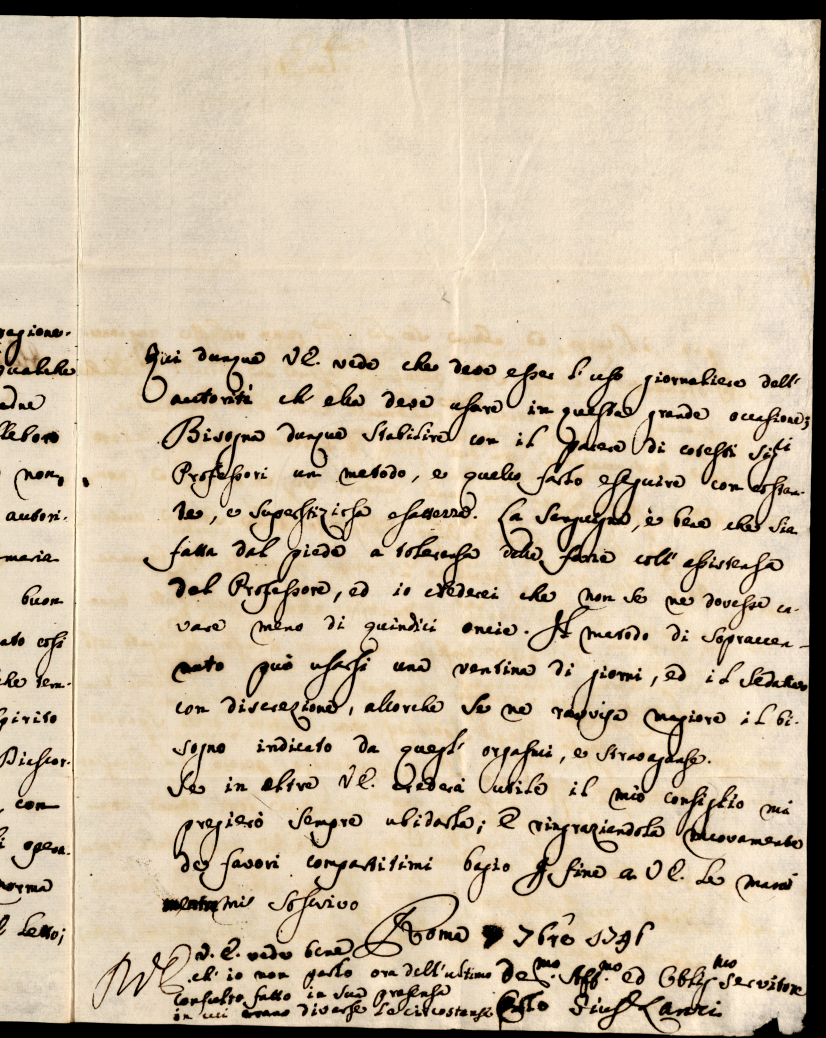 ragione-
qualche
non,
autori-
buon
che tem-
spirito
con
i opera-
norma
l letto;
Qui dunque V.E. vede che deve esser l'uso giornaliero dell'
autorità ch' ella deve usare in questa grande occasione;
Bisogna dunque stabilire con il parere di cotesti Sig.ri
Professori un metodo, e quello farlo eseguire con costan-
te, e superstiziosa esattezza. La sanguigna, è bene che sia
fatta dal piede a toleranza delle forze coll' assistenza
del Professore, ed io crederei che non se ne dovesse ca-
vare meno di quindici oncie. Il metodo di sopraccen-
nato può usarsi una ventina di giorni, ed il sedativo
con discrezione, allorche se ne ravvisa magiore il bi-
sogno indicato da quegl' orgasmi, e stravaganze.
Se in oltre V.E. crederà utile il mio consiglio mi
pregierò sempre ubidirla; E ringraziandola nuovamente
de favori compartitimi bagio per fine a V.E. le mani
mentre mi soscrivo
Roma 7bre 1746
V.E. vede bene
ch' io non parlo ora dell'ultimo
consulto fatto in sua presenza
in cui erano diverse le circostanze
De.mo Aff.mo ed Obblig.mo Servitore
Gius. Lanzi